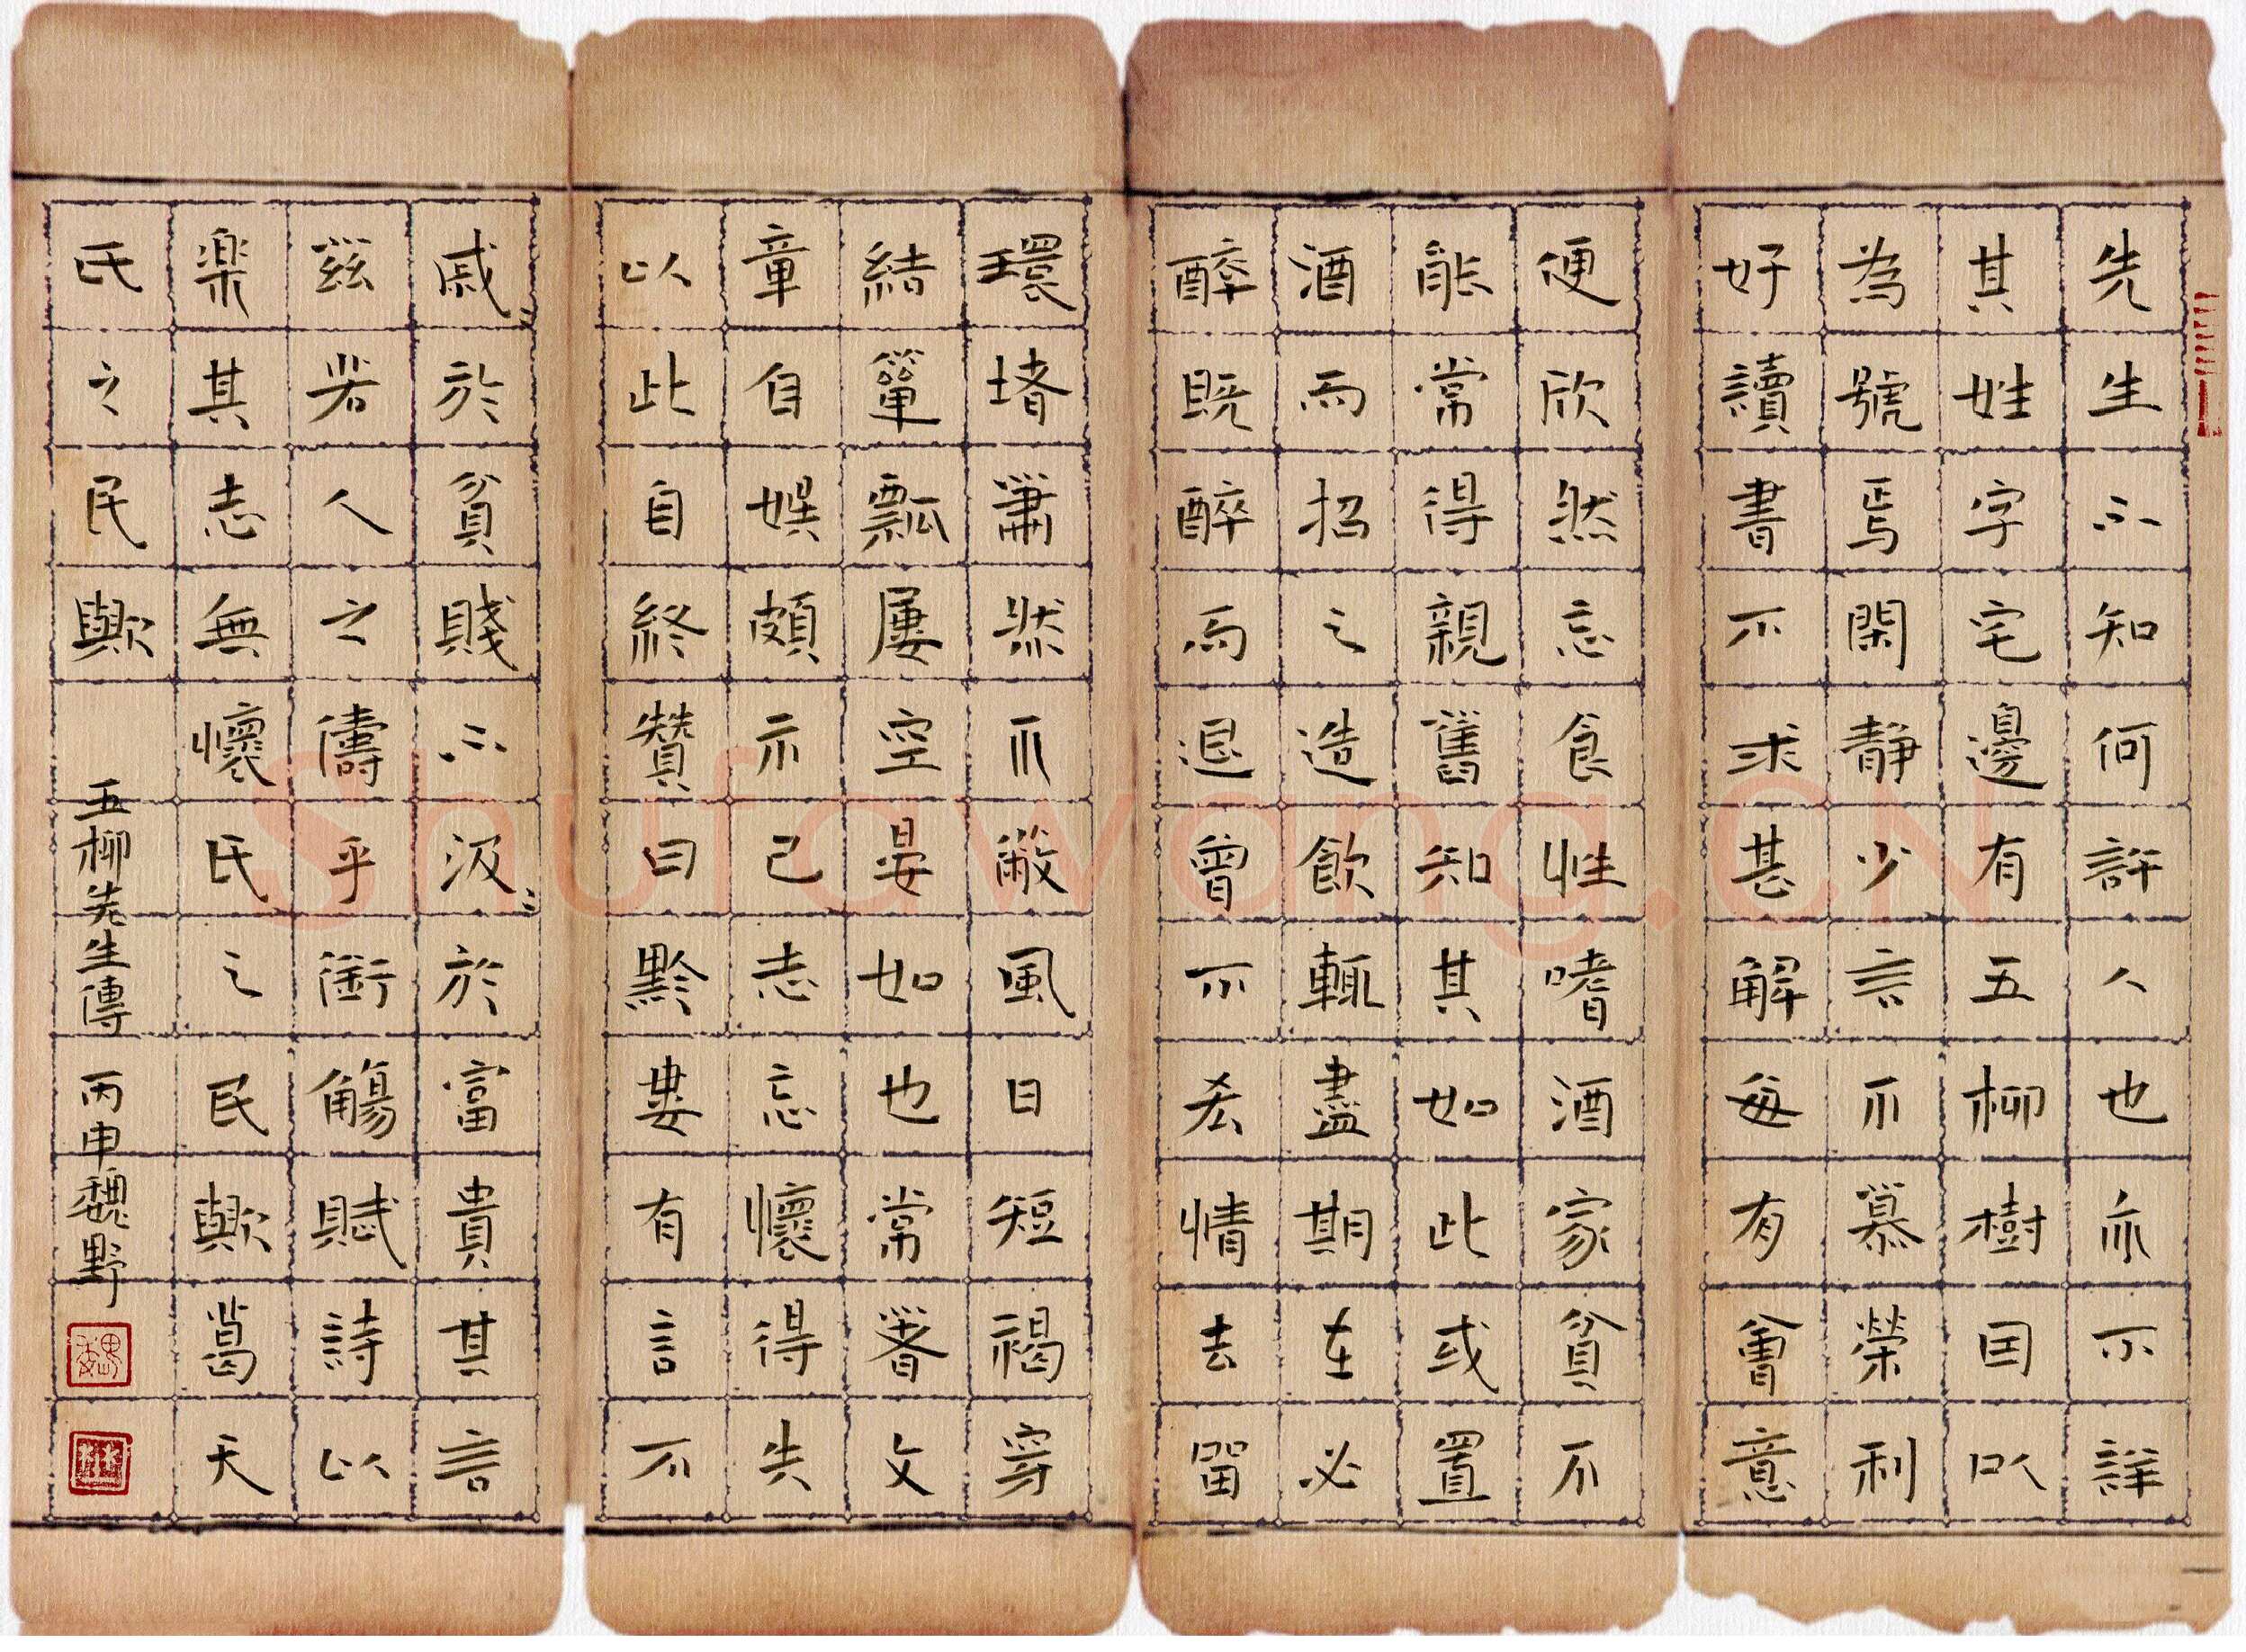 先生不知何許人也亦不詳
其姓字宅邊有五柳樹因以
為號焉閑靜少言不慕榮利
好讀書不求甚解每有會意
便欣然忘食性嗜酒家貧不
能常得親舊知其如此或置
酒而招之造飲輒盡期在必
醉既醉而退曾不吝情去留
環堵蕭然不蔽風日短褐穿
結簞瓢屢空晏如也常著文
章自娛頗示己志忘懷得失
以此自終贊曰黔婁有言不
戚々於貧賤不汲々於富貴其言
茲若人之儔乎銜觴賦詩以
楽其志無懷氏之民歟葛天
氏之民歟
五柳先生傳 丙申魏野
魏
Shufawang.CN